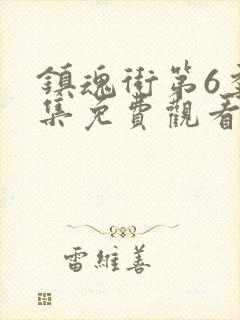 鎮魂街第6季
集免費觀看
雷維善